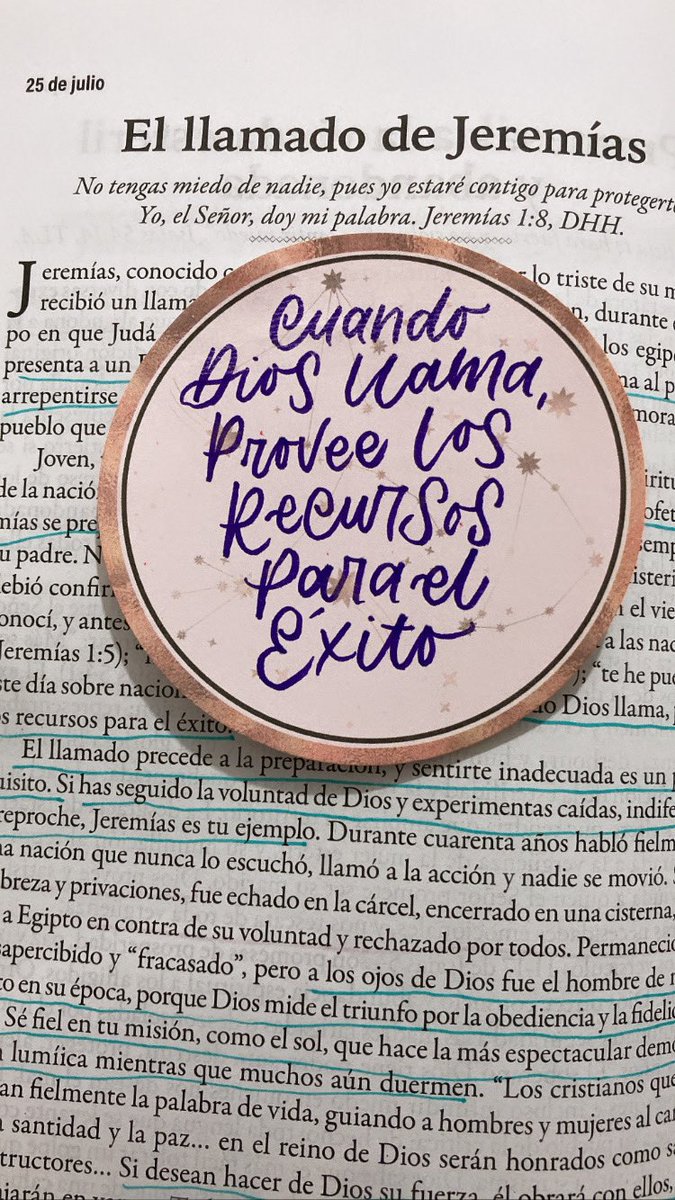 25 de julio
El llamado de Jeremías
No tengas miedo de nadie, pues yo estaré contigo para protegerte
Yo, el Señor, doy mi palabra. Jeremías 1:8, DHH.
Cuando
Dios llama,
Provee los
Recursos
para el
Éxito
Jeremías, conocido lo triste de su
recibió un durante
po en que Judá los
presenta a un al
arrepentirse
pueblo que
Joven,
de la
mías se
u padre.
ebió
onocí, y antes a las
Jeremías 1:5); "te he
ste día sobre
Dios llama,
s recursos para el éxito.
El llamado precede a la preparación, y sentirte inadecuada es un
uisito. Si has seguido la voluntad de Dios y experimentas caídas,
reproche, Jeremías es tu ejemplo. Durante cuarenta años habló
na nación que nunca lo escuchó, llamó a la acción y nadie se movió.
breza y privaciones, fue echado en la cárcel, encerrado en una cisterna,
a Egipto en contra de su voluntad y rechazado por todos.
sapercibido y “fracasado”, pero a los ojos de Dios fue el hombre de
to en su época, porque Dios mide el triunfo por la obediencia y la
Sé fiel en tu misión, como el sol, que hace la más espectacular
lumíica mientras que muchos aún duermen. “Los cristianos que
an fielmente la palabra de vida, guiando a hombres y mujeres al
santidad y la paz... en el reino de Dios serán honrados como
tructores... Si desean hacer de Dios su fuerza, él obrará con ellos,